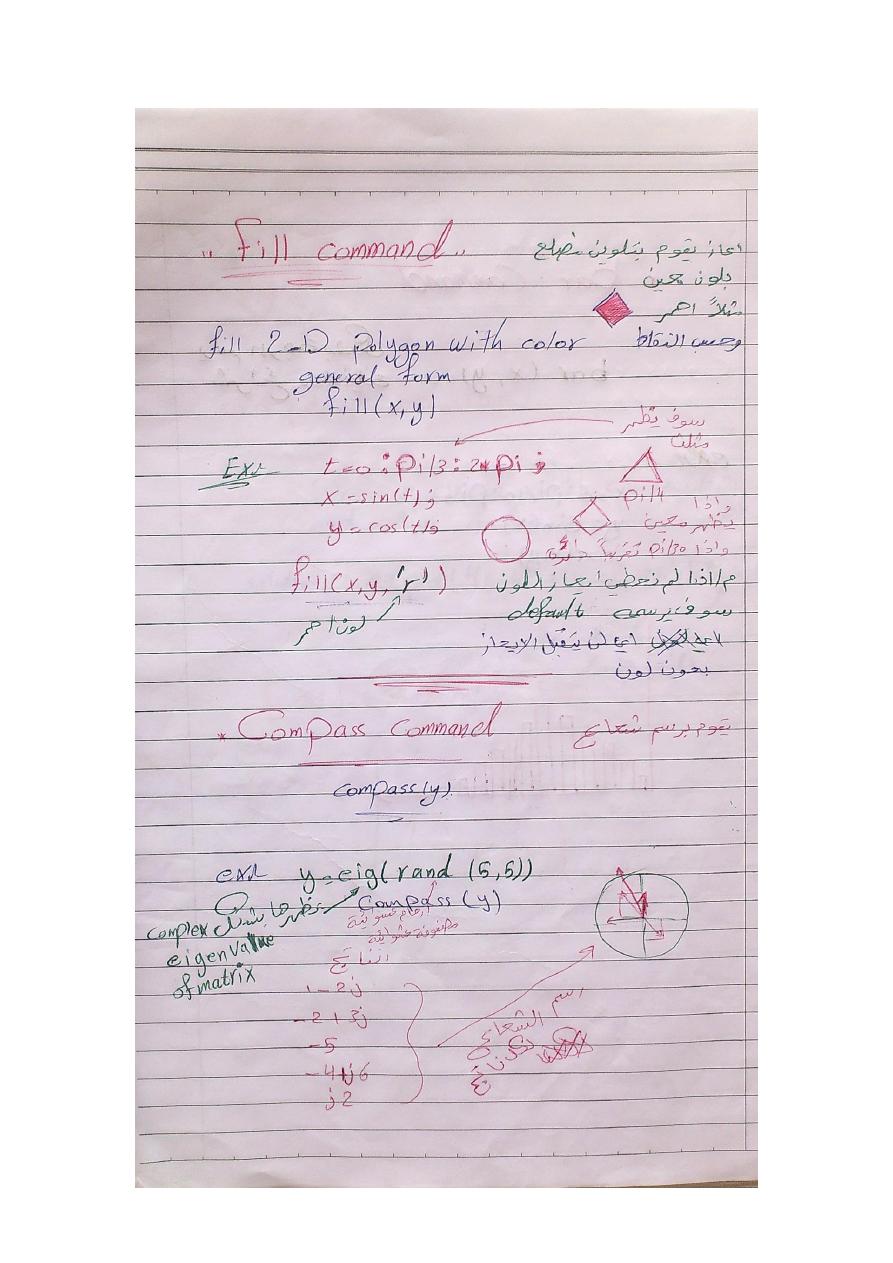 "Fill command"
ايعاز يقوم بتلوين مضلع
بلون معين
مثلاً احمر
وحسب النقاط
fill 2-D polygon with color
general form
fill(x,y)
سوف يظهر
مثلث
Ex:
t=0:pi/3:2*pi;
x=sin(t);
y=cos(t);
pi/4 واذا
يظهر معين
واذا pi/30 تقريباً دائرة
fill(x,y,'r')
لون احمر
م/اذا لم نعطي ايعاز اللون
سوف يرسمه default
اي لن يتقبل الايعاز
بدون لون
* Compass Command
يقوم برسم شعاع
compass(y)
ex:
y=eig(rand(5,5))
Compass(y)
نظهرها بشكل
complex
eigen value
of matrix
ارقام عشوائية
مصفوفة عشوائية
الناتج
1-2j
-2+3j
-5
-4+j6
j2
رسم الشعاع
لكل ناتج